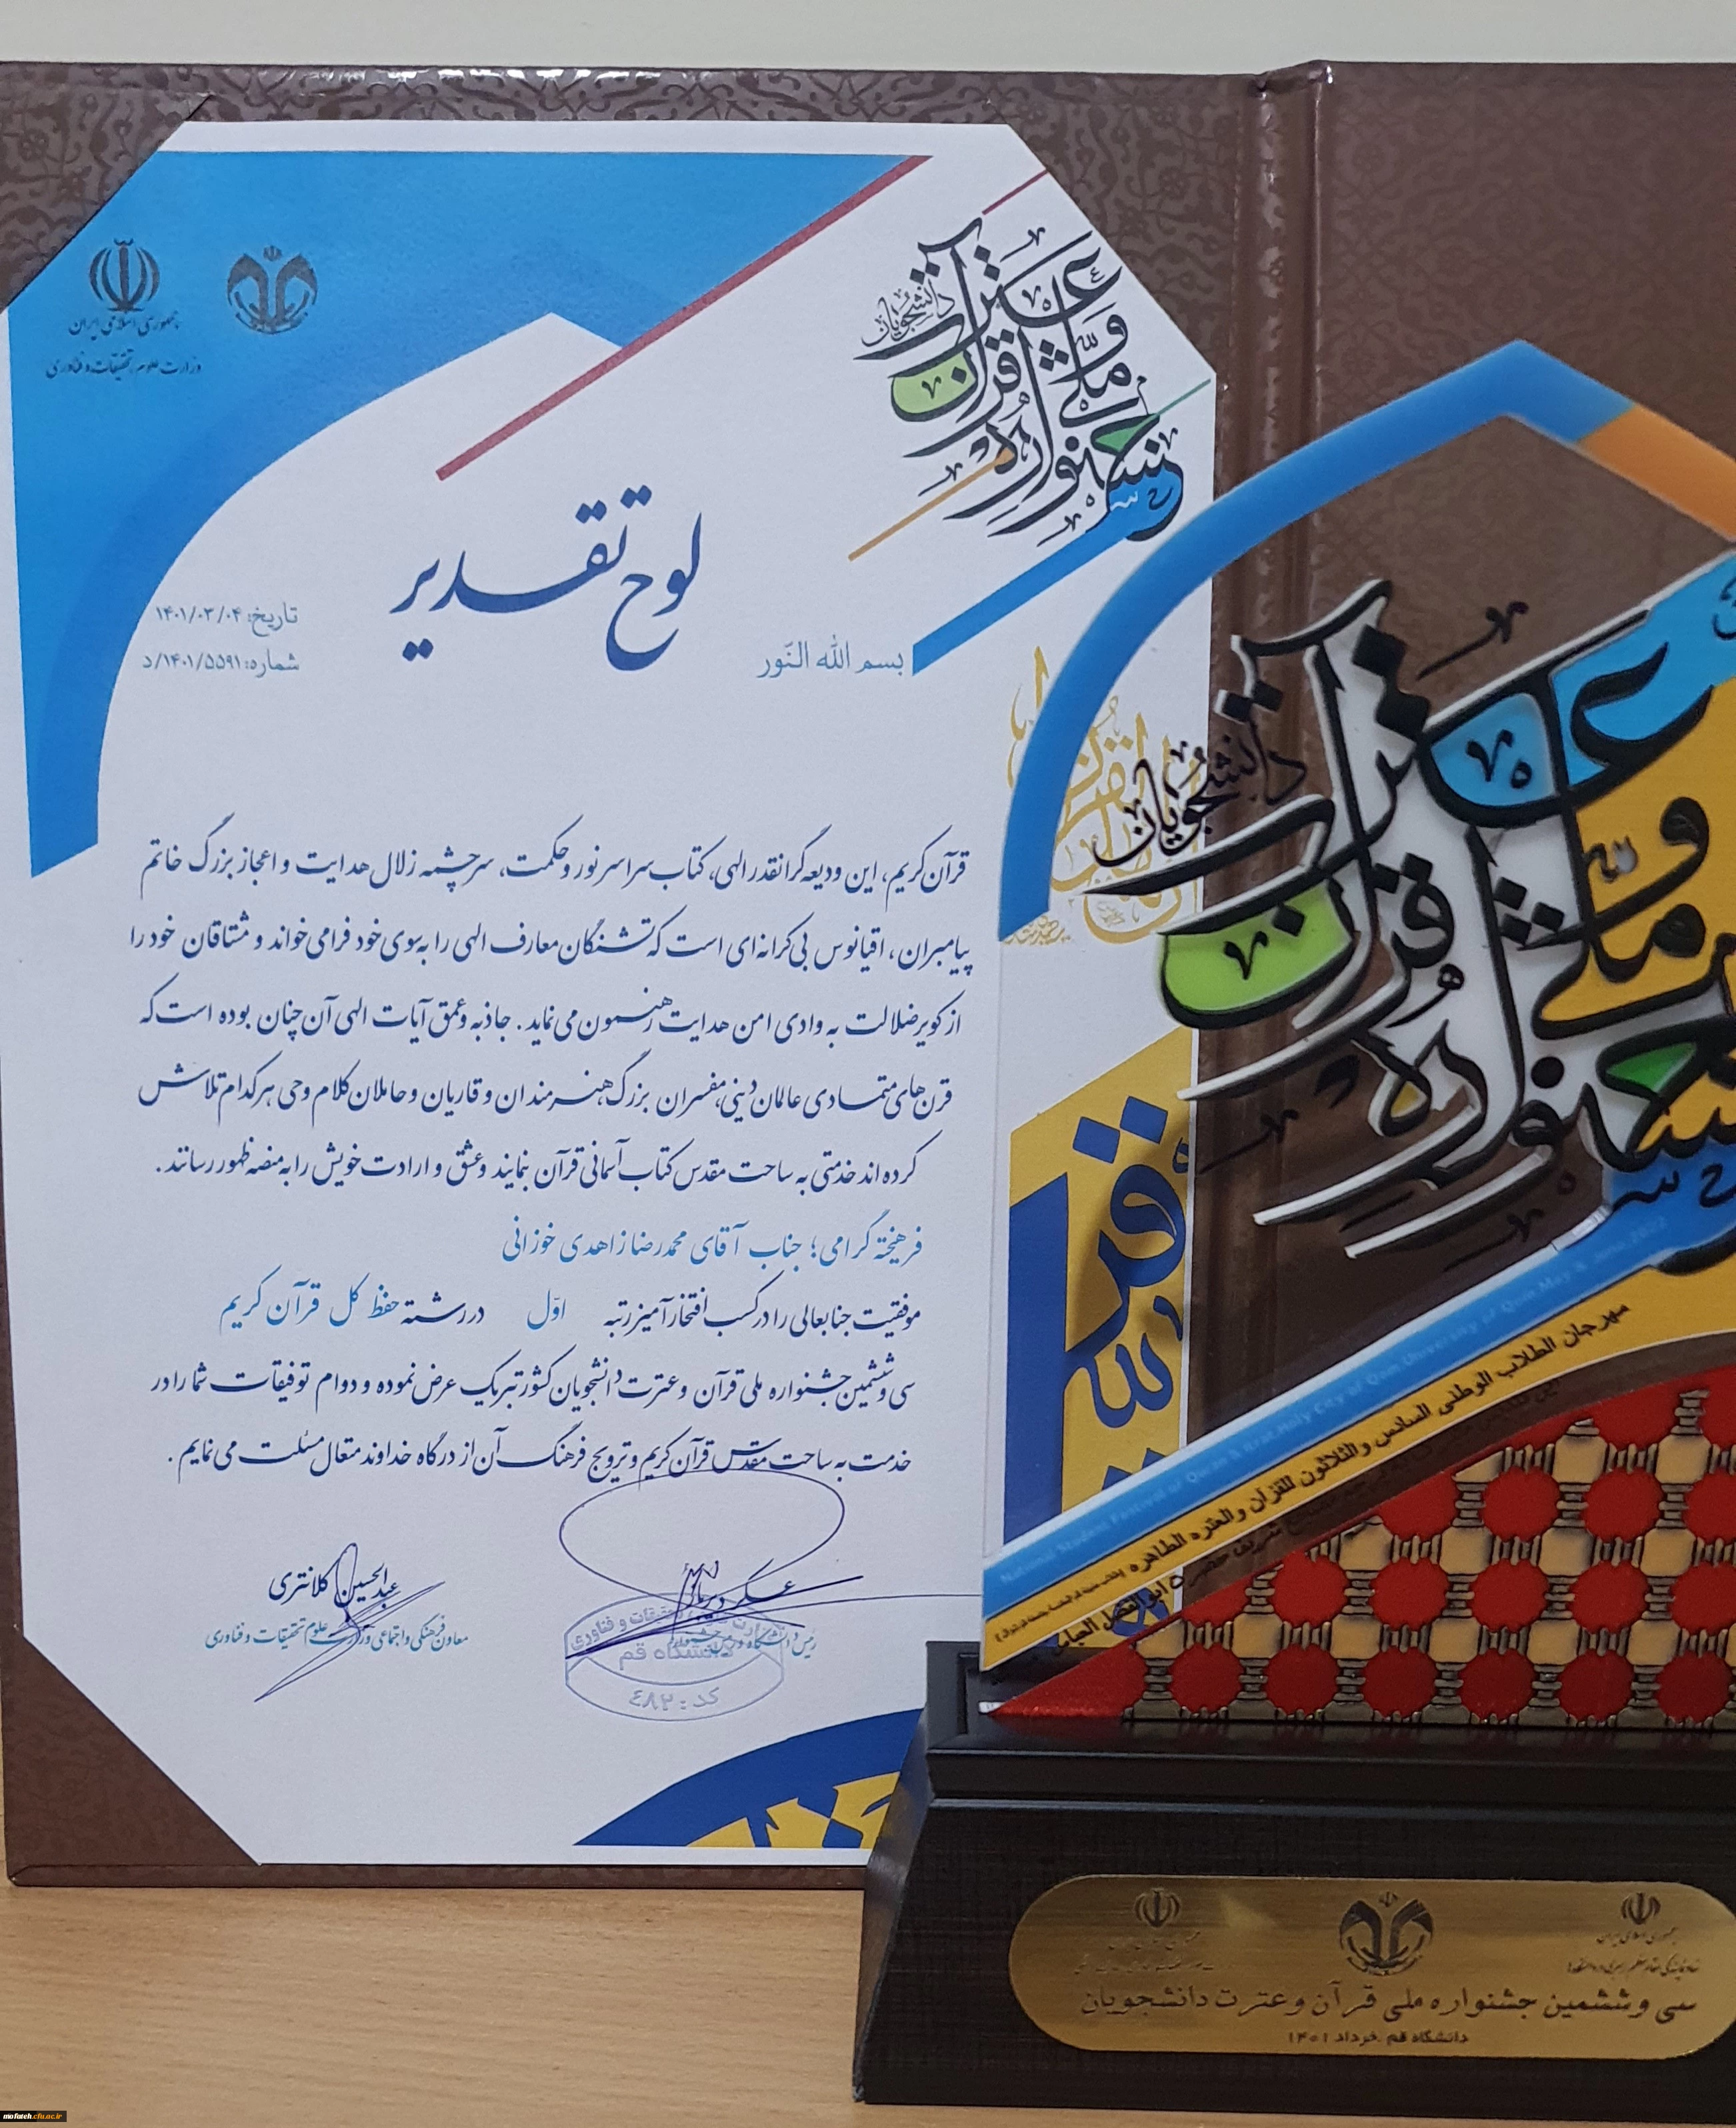 جمهوری اسلامی ایران
وزارت علوم، تحقیقات و فناوری
جشنواره ملی قرآن و عترت دانشجویان
لوح تقدیر
تاریخ: ۱۴۰۱/۰۳/۰۴
شماره: ۱۴۰۱/۵۵۹۱/د
بسم الله النّور
قرآن کریم، این ودیعه گرانقدر الهی، کتاب سراسر نور و حکمت، سرچشمه زلال هدایت و اعجاز بزرگ خاتم
پیامبران، اقیانوس بی کرانه ای است که تشنگان معارف الهی را به سوی خود فرا می خواند و مشتاقان خود را
از کویر ضلالت به وادی امن هدایت رهنمون می نماید. جاذبه و عمق آیات الهی آن چنان بوده است که
قرن های متمادی عالمان دینی، مفسران بزرگ، هنرمندان و قاریان و حاملان کلام وحی هر کدام تلاش
کرده اند خدمتی به ساحت مقدس کتاب آسمانی قرآن بنمایند و عشق و ارادت خویش را به منصه ظهور رسانند.
فرهیخته گرامی؛ جناب آقای محمدرضا زاهدی خوزانی
موفقیت جنابعالی را در کسب افتخارآمیز رتبه اوّل در رشته حفظ کل قرآن کریم
سی و ششمین جشنواره ملی قرآن و عترت دانشجویان کشور تبریک عرض نموده و دوام توفیقات شما را در
خدمت به ساحت مقدس قرآن کریم و ترویج فرهنگ آن از درگاه خداوند متعال مسئلت می نمایم.
عبدالحسین کلانتری
معاون فرهنگی و اجتماعی وزارت علوم تحقیقات و فناوری
رئیس دانشگاه
دانشگاه قم
کد: ٤٨٢
جشنواره ملی قرآن و عترت دانشجویان
National Student Festival of Quran & Itrat Holy City of Qom University of Qom May & June, 2022
مهرجان الطلاب الوطنی السادس والثلاثون للقرآن والعتره الطاهره
جمهوری اسلامی ایران
سی و ششمین جشنواره ملی قرآن و عترت دانشجویان
دانشگاه قم ـ خرداد ۱۴۰۱
mofateh.cfu.ac.ir